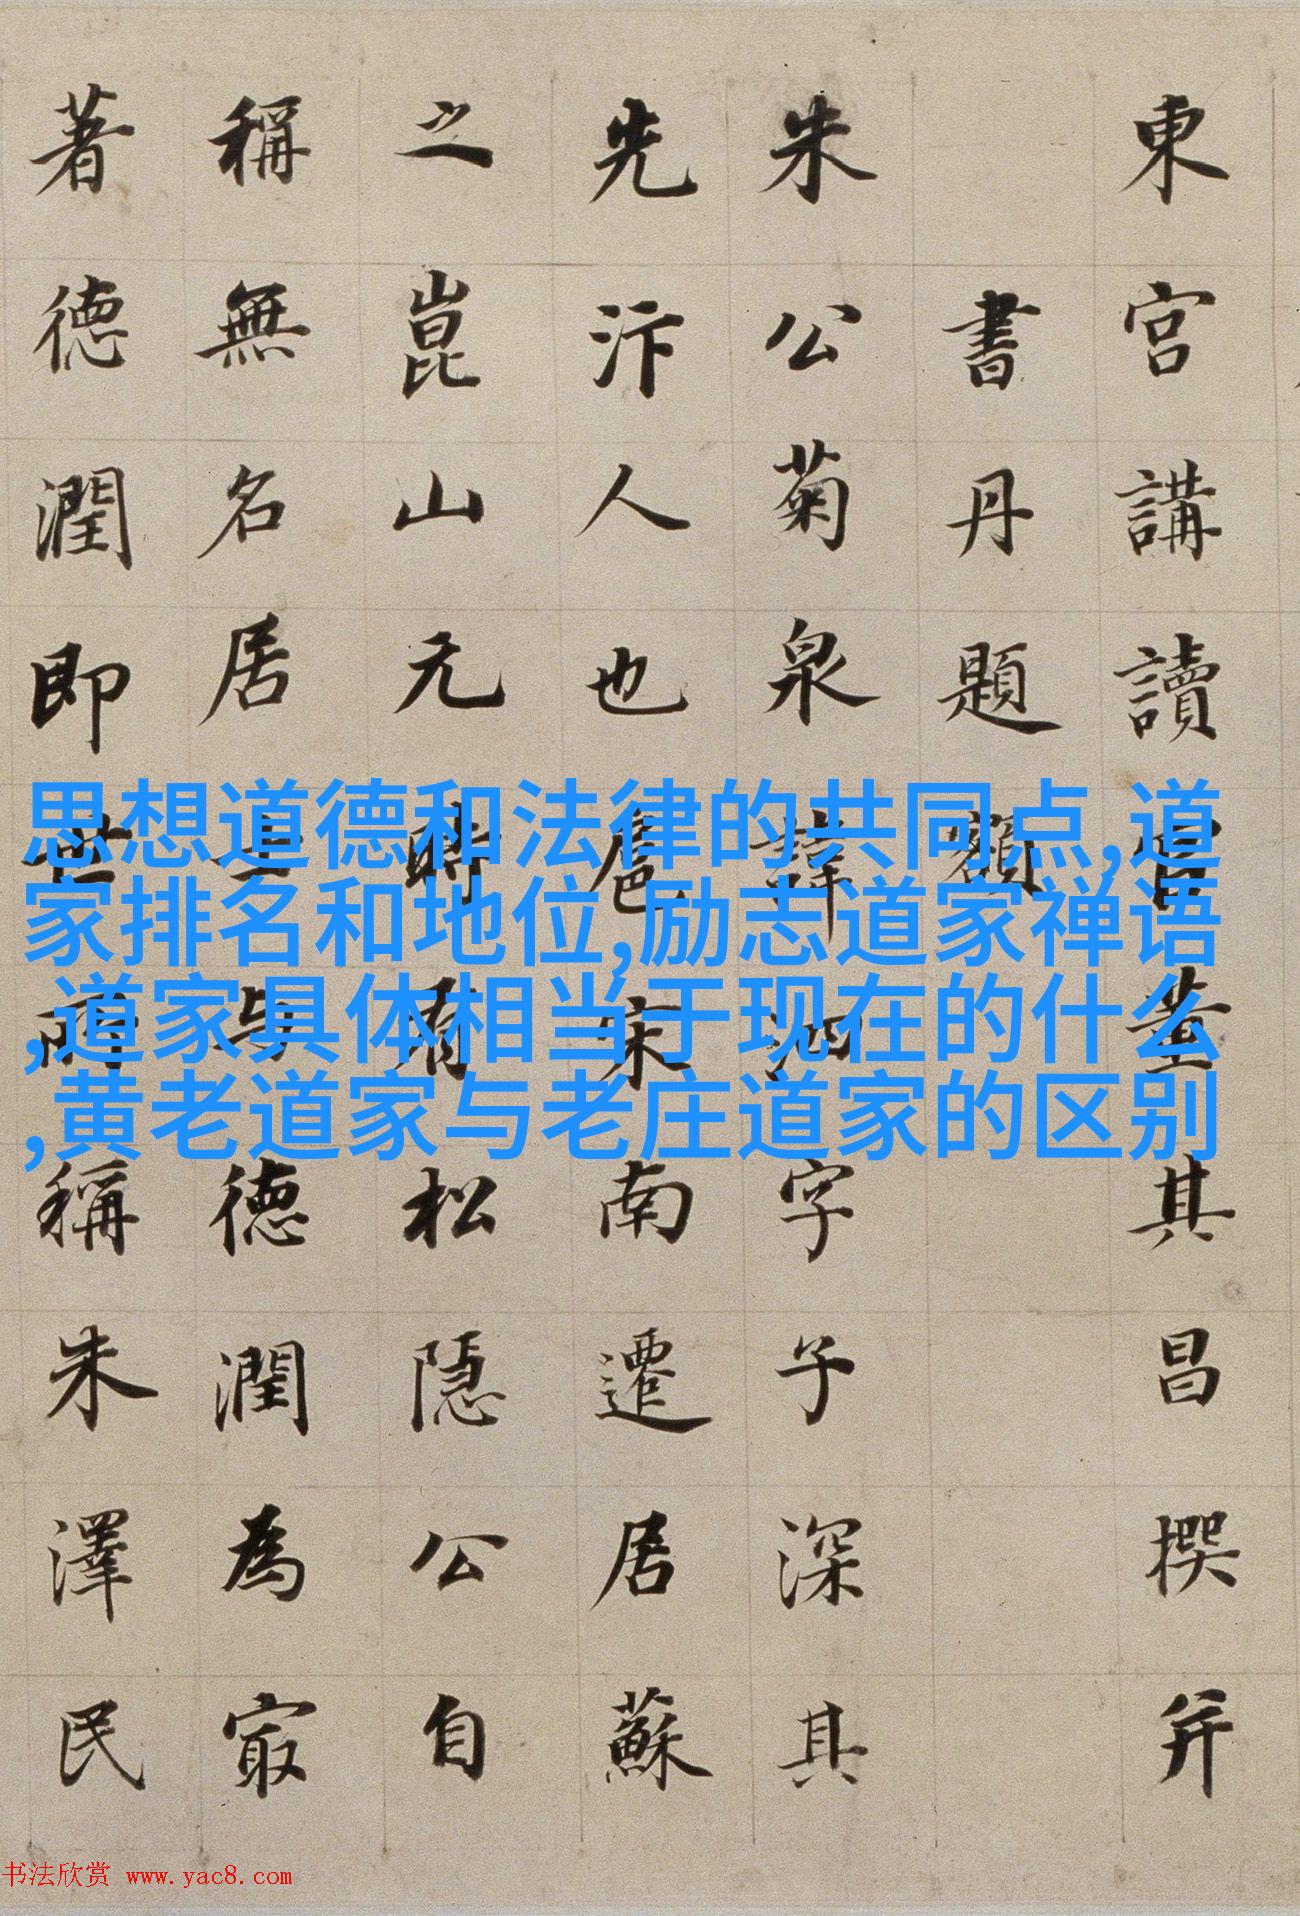 東宮講讀官董其昌撰并
書丹題額
朱公菊泉諱泗字子深其
先汴人也扈宋南遷居蘇
之崑山元時有松隱公自
稱無名居士与德潤為冣
著德潤即世所稱朱澤民
思想道德和法律的共同点,道
家排名和地位,励志道家禅语
,道家具体相当于现在的什么
,黄老道家与老庄道家的区别
书法欣赏 www.yac8.com